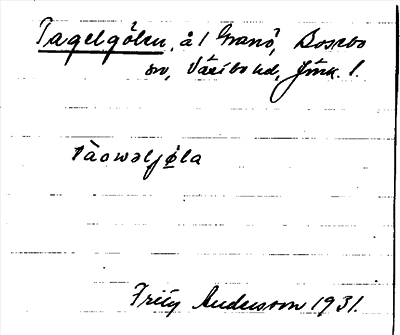 Tagelgölen, å l Granö, Bosebo
sn, Västbo hd, Jönk. l.
tàowəljø̀la
Fritz Andersson 1931.